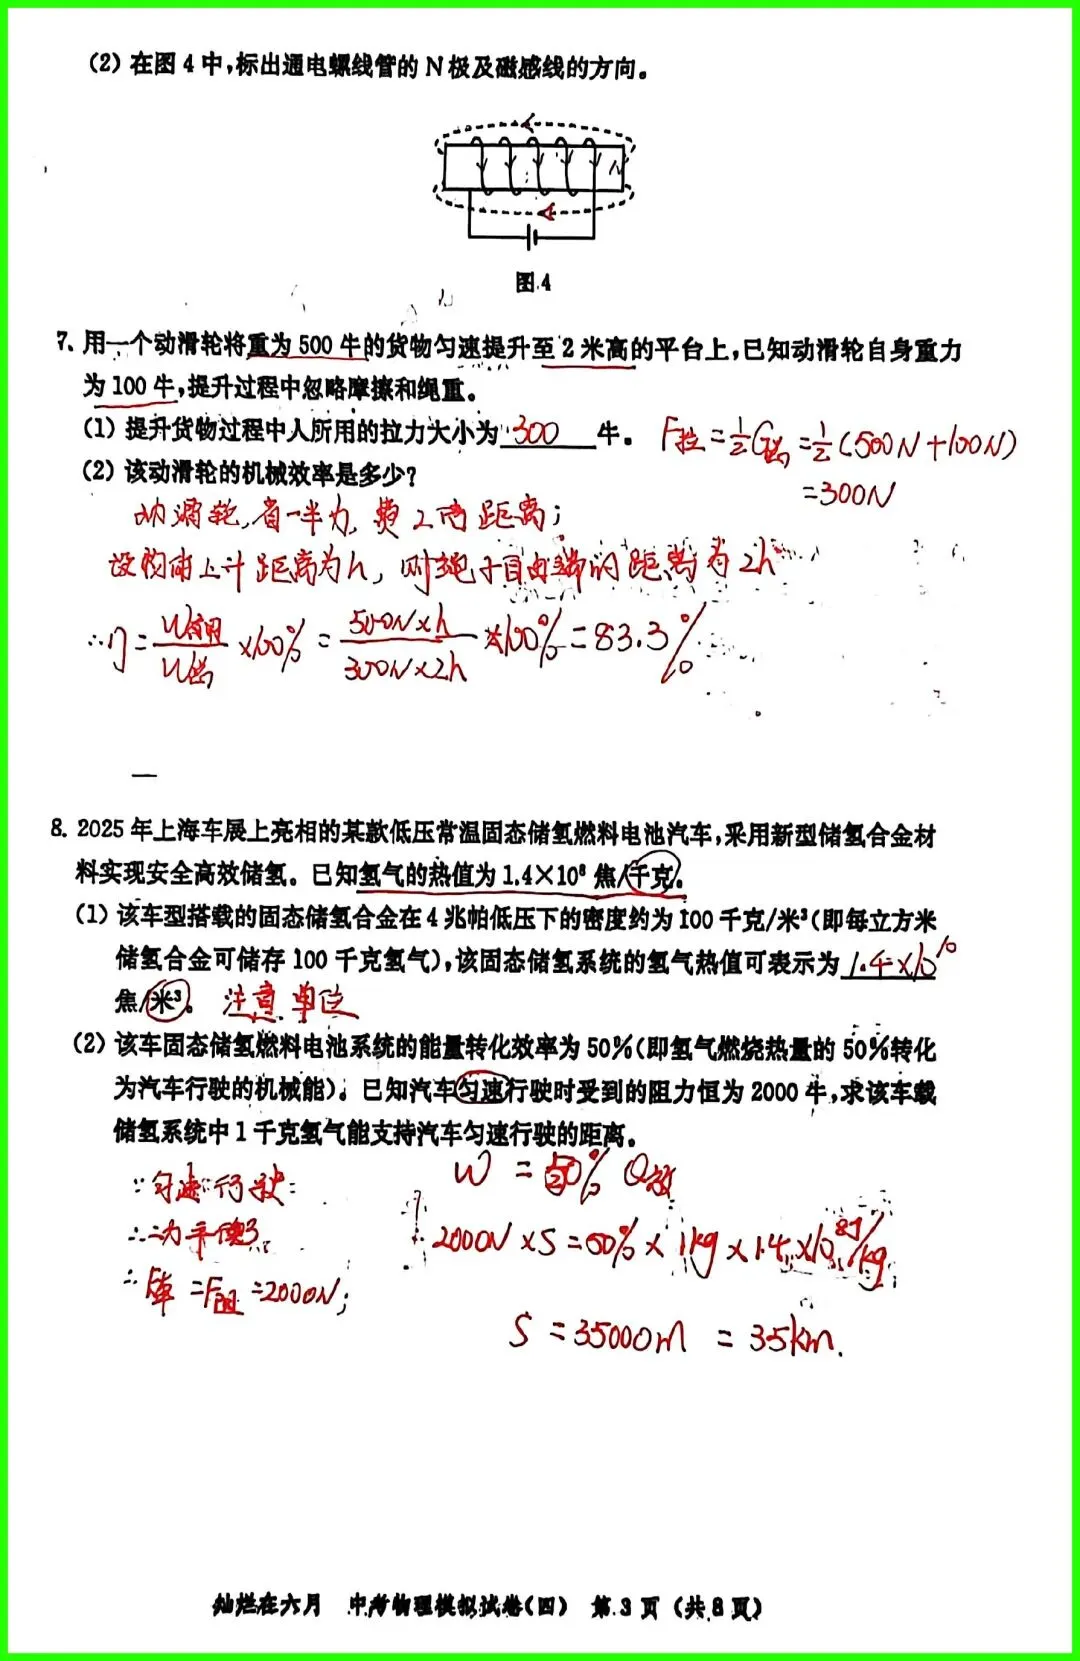 (2) 在图 4 中,标出通电螺线管的 N 极及磁感线的方向。
N
图 4
7. 用一个动滑轮将重为 500 牛的货物匀速提升至 2 米高的平台上,已知动滑轮自身重力
为 100 牛,提升过程中忽略摩擦和绳重。
(1) 提升货物过程中人所用的拉力大小为 300 牛。 F拉 = ½G总 = ½(500N+100N)
= 300N
(2) 该动滑轮的机械效率是多少?
动滑轮,省一半力,费2倍距离;
设物体上升距离为h,则绳子自由端的距离为2h
∴η = W有用/W总 ×100% = 500N×h/300N×2h ×100% = 83.3%
8. 2025 年上海车展上亮相的某款低压常温固态储氢燃料电池汽车,采用新型储氢合金材
料实现安全高效储氢。已知氢气的热值为 1.4×10⁸ 焦/千克。
(1) 该车型搭载的固态储氢合金在 4 兆帕低压下的密度约为 100 千克/米³(即每立方米
储氢合金可储存 100 千克氢气),该固态储氢系统的氢气热值可表示为 1.4×10¹⁰
焦/米³。 注意单位
(2) 该车固态储氢燃料电池系统的能量转化效率为 50%(即氢气燃烧热量的 50%转化
为汽车行驶的机械能)。已知汽车匀速行驶时受到的阻力恒为 2000 牛,求该车载
储氢系统中 1 千克氢气能支持汽车匀速行驶的距离。
∵匀速行驶 W = 50% Q放
∴二力平衡 2000N×S = 50%×1kg×1.4×10⁸J/kg
∴F牵 = F阻 = 2000N;
S = 35000m = 35km.
灿烂在六月 中考物理模拟试卷(四) 第 3 页 (共 8 页)